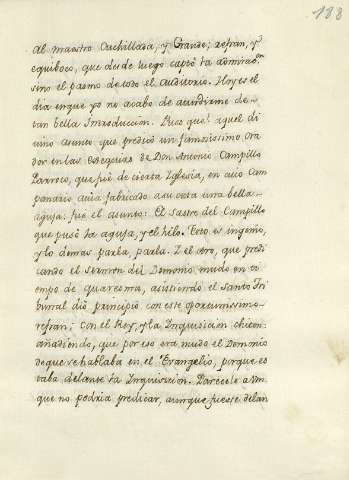 188
Al maestro Cuchillada, y Grande; refran, y
equiboco, que desde luego captò la admiracon
sino el pasmo de todo el Auditorio. Hoy es el
dia en que yo no acabo de aturdirme de
tan bella Introduccion. Pues que! aquel di
uino asunto que predicò un famosissimo Ora
dor en las Exequias de Don Antonio Campillo
Parroco, que fuè de cierta Iglesia, en cuio Cam
panario auia fabricado a su costa una bella
aguja: fuè el asunto: El Sastre del Campillo
que puso la aguja, y el hilo. Esto es ingenio,
y lo demas parla, parla. Y el otro, que predi
cando el sermon del Demonio mudo en ti
empo de quaresma, asistiendo el Santo Tri
bunal diò principio con este oportunissimo
refran; con el Rey, y la Inquisicion chiton:
añadiendo, que por eso era mudo el Demonio
de que se hablaba en el Evangelio, porque es
taba delante la Inquisicion. Parecele a Vm
que no podria predicar, aunque fuesse delan